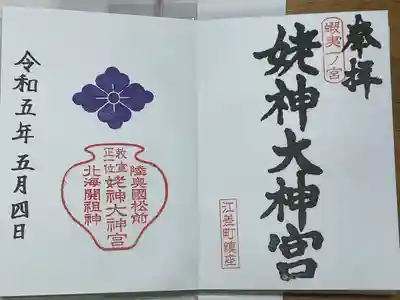 奉拝
蝦夷ノ宮
姥神大神宮
江差町鎮座
陸奥國松前
姥神大神宮
勅宣
正一位
北海開祖神
令和五年五月四日